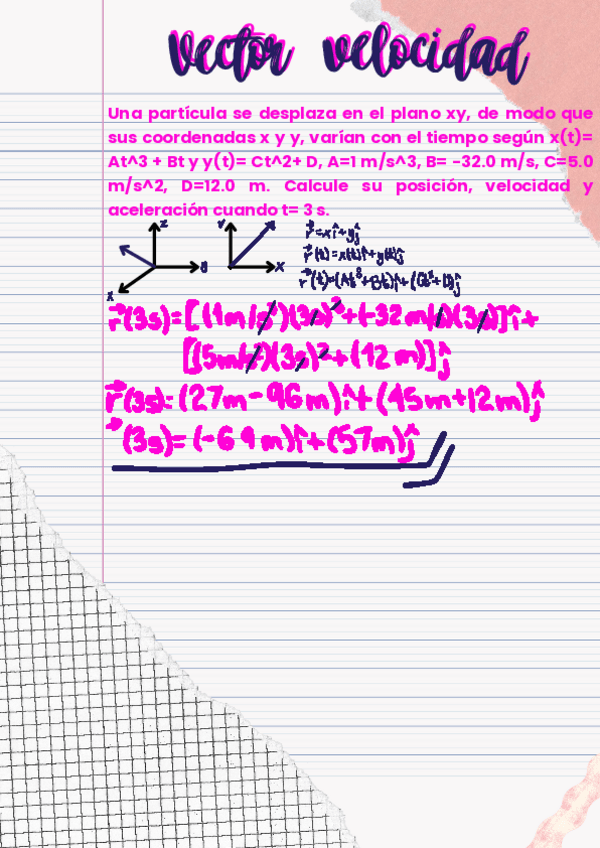 vector velocidad
Una partícula se desplaza en el plano xy, de modo que
sus coordenadas x y y, varían con el tiempo según x(t)=
At^3 + Bt y y(t)= Ct^2+ D, A=1 m/s^3, B= -32.0 m/s, C=5.0
m/s^2, D=12.0 m. Calcule su posición, velocidad y
aceleración cuando t= 3 s.
z y x
y x
r⃗=xî+yĵ
r⃗(t)=x(t)î+y(t)ĵ
r⃗(t)=(At³+Bt)î+(Ct²+D)ĵ
r⃗(3s)=[(1m/s³)(3s)³+(-32m/s)(3s)]î+
[(5m/s²)(3s)²+(12m)]ĵ
r⃗(3s)=(27m-96m)î+(45m+12m)ĵ
r⃗(3s)=(-69m)î+(57m)ĵ